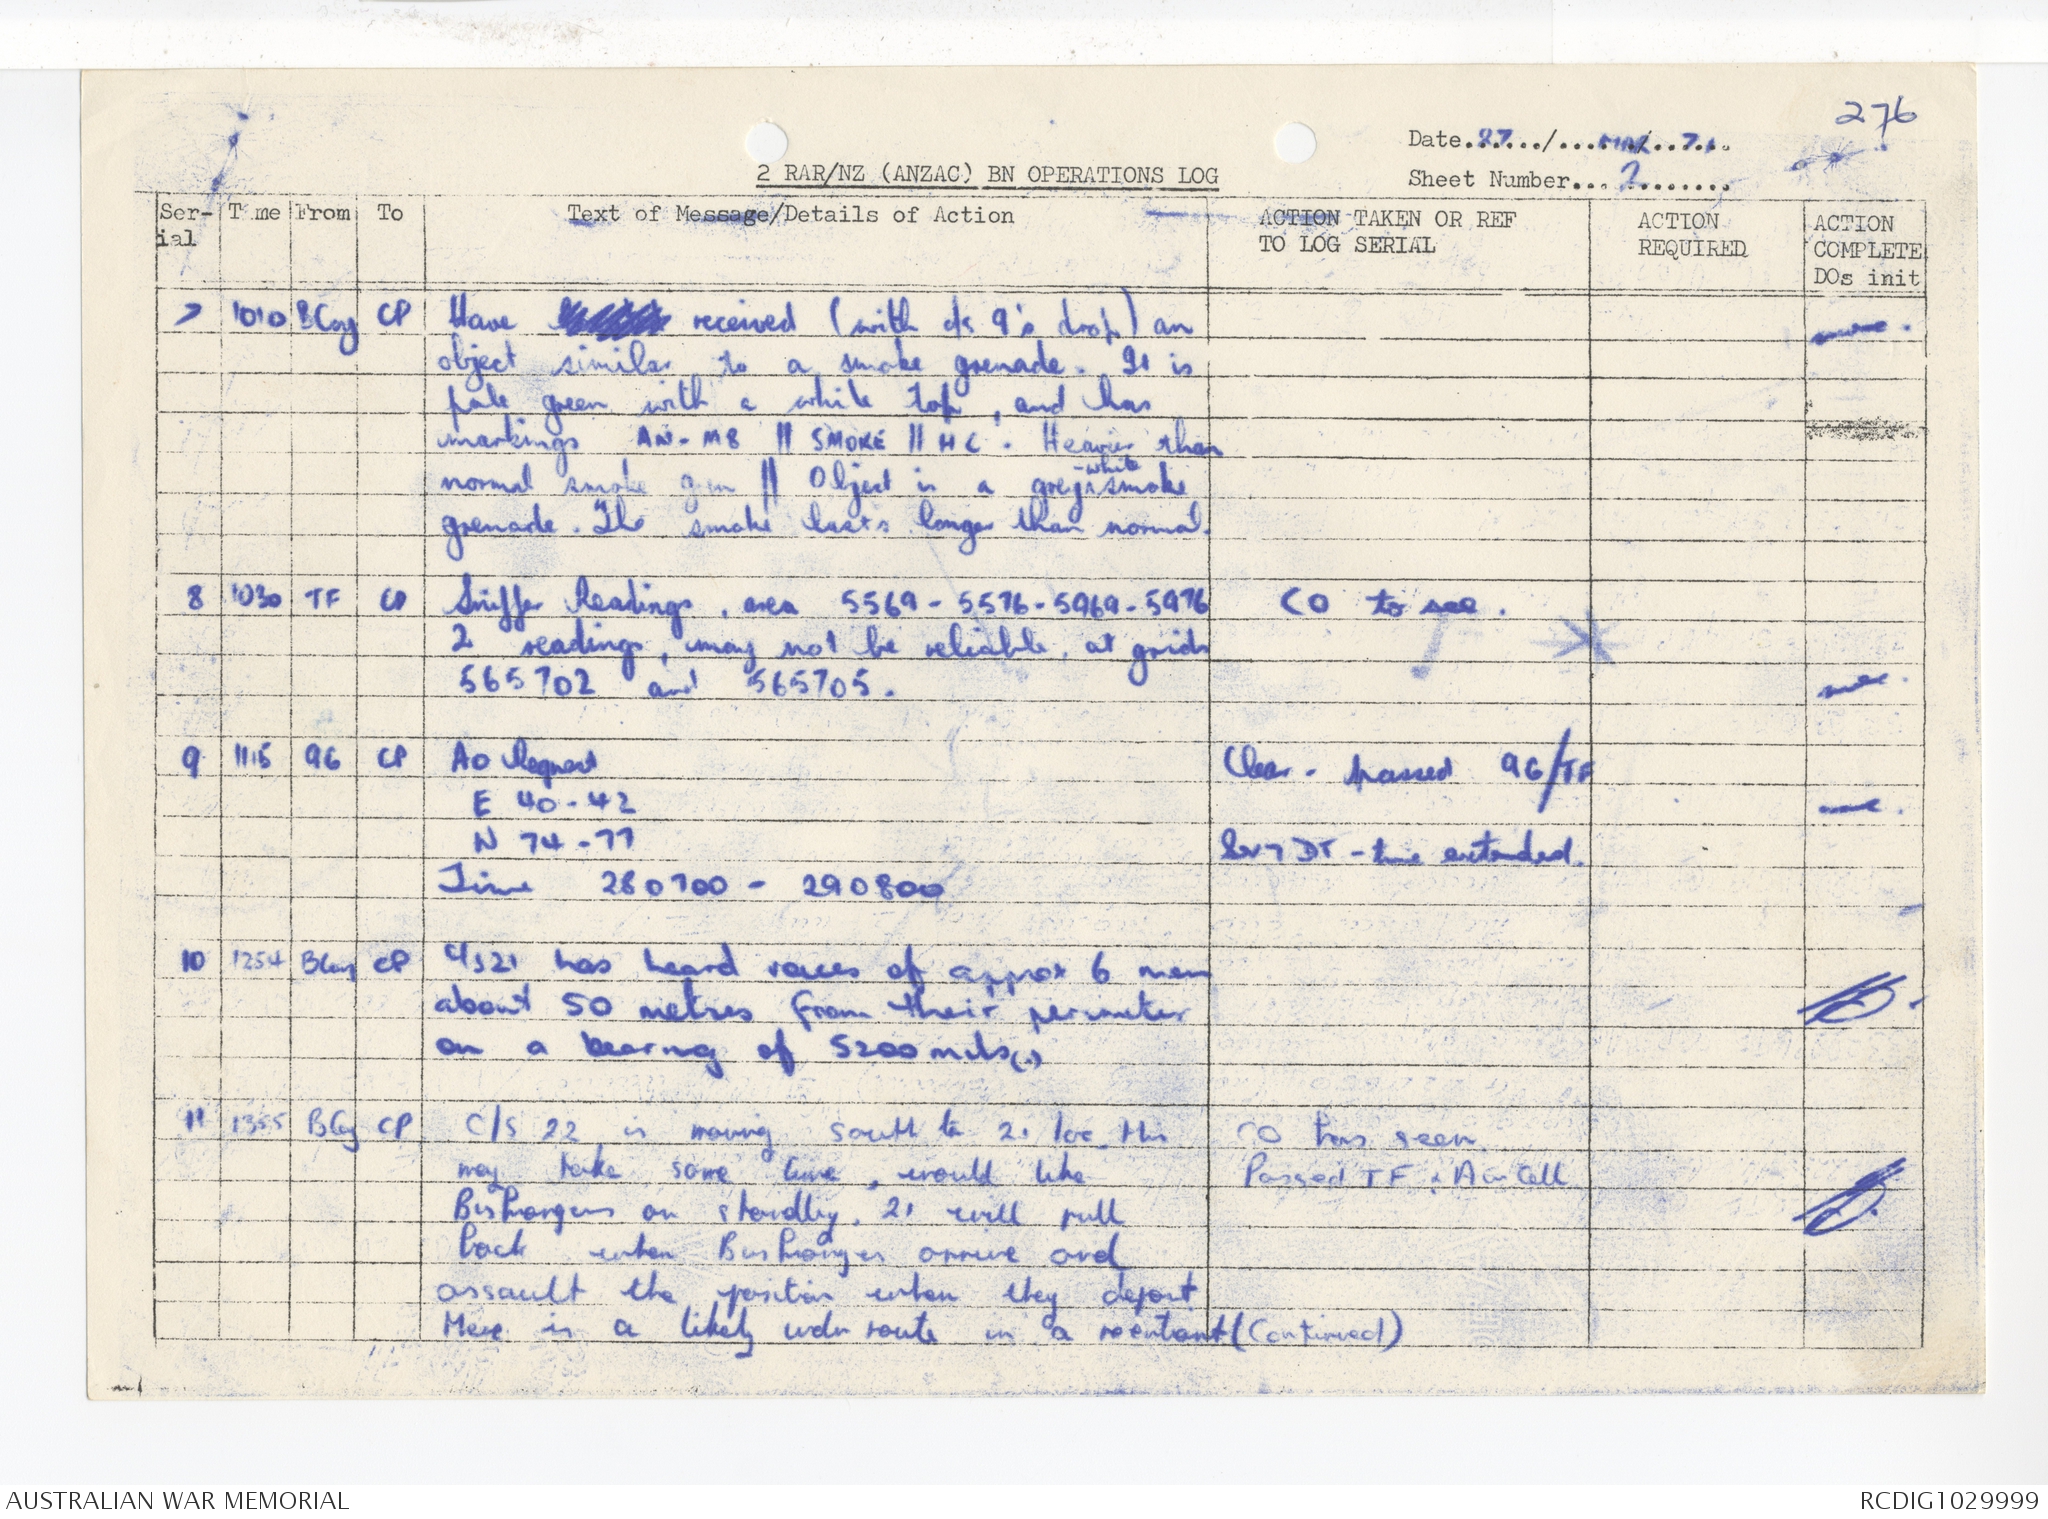 276
Date..27.../....MAR./..71..
2 RAR/NZ (ANZAC) BN OPERATIONS LOG
Sheet Number....2........
Ser-ial Time From To Text of Message/Details of Action ACTION TAKEN OR REF TO LOG SERIAL ACTION REQUIRED ACTION COMPLETE DOs init
7 1010 BCoy CP Have received (with c/s 9's drop) an
object similar to a smoke grenade. It is
pale green with a white top, and has
markings AN-M8 || SMOKE || HC. Heavier than
normal smoke gren || Object is a grey-white smoke
grenade. The smoke lasts longer than normal.
8 1030 TF CP Sniffer Readings, area 5569-5576-5969-5976 CO to see.
2 readings, may not be reliable, at grids
565702 and 565705.
9 1115 96 CP AO Request Clear - passed 96/TF
E 40-42
N 74-77 DT - time extended.
Time 280700 - 290800
10 1254 BCoy CP C/S21 has heard voices of approx 6 men
about 50 metres from their perimeter
on a bearing of 5200 mils(.)
11 1355 BCoy CP C/S 22 is moving south to 21 loc. This CO has seen
may take some time, would like Passed TF & Air Cell
Bushrangers on standby. 21 will pull
back when Bushrangers arrive and
assault the position when they depart
There is a likely wdr route in a reentrant (Continued)
AUSTRALIAN WAR MEMORIAL
RCDIG1029999